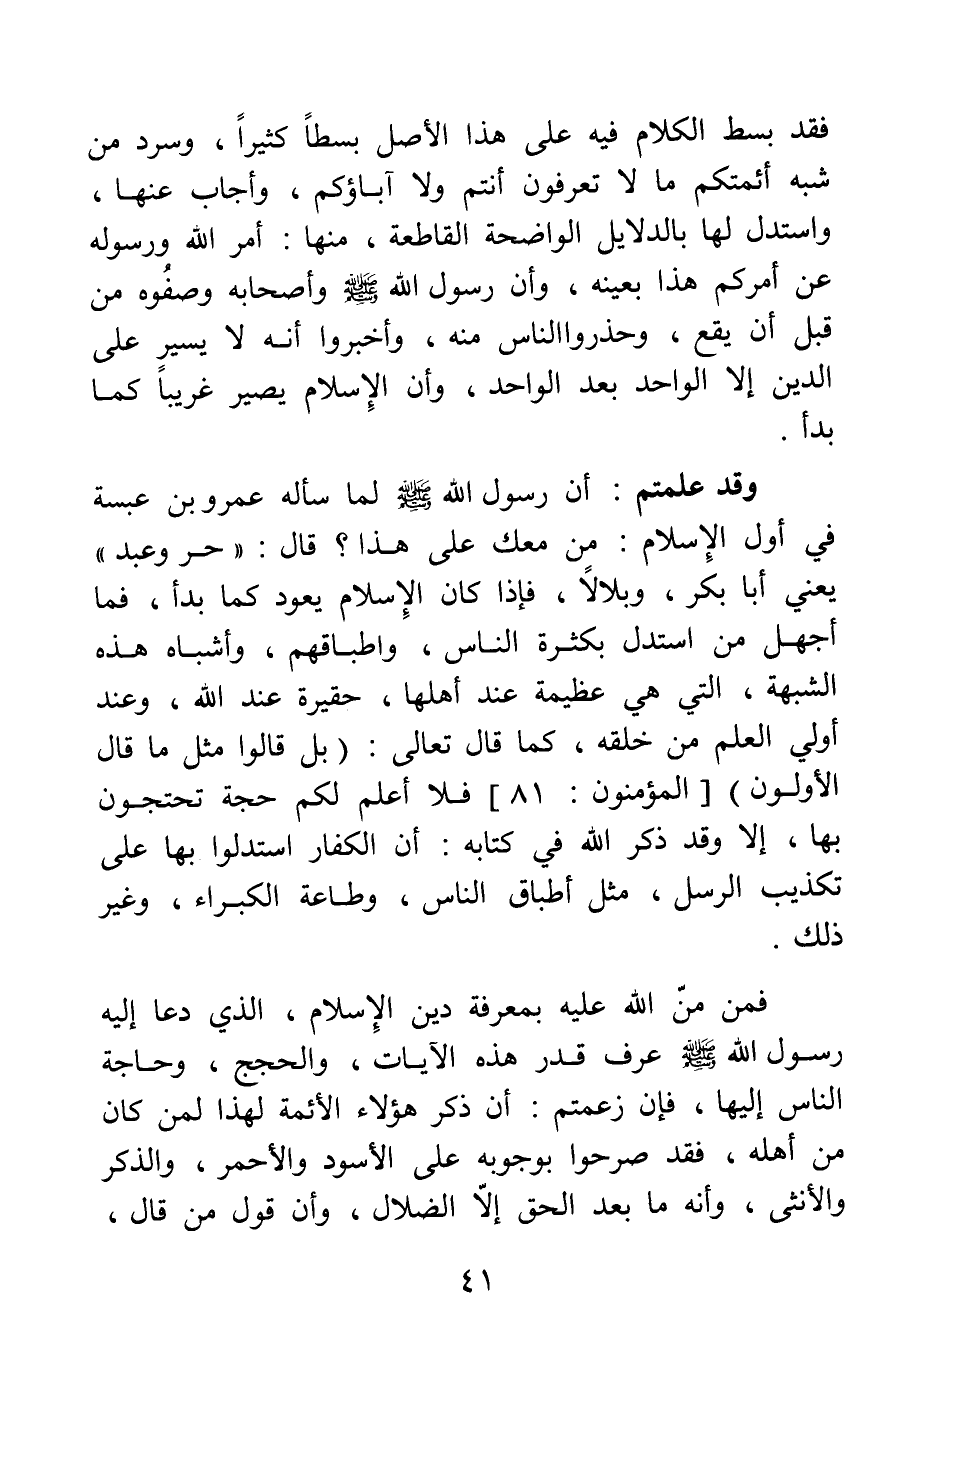 فقد بسط الكلام فيه على هذا الأصل بسطاً كثيراً ، وسرد من
شبه أئمتكم ما لا تعرفون أنتم ولا آبـاؤكم ، وأجاب عنهـا ،
واستدل لها بالدلايل الواضحة القاطعة ، منها : أمر الله ورسوله
عن أمركم هذا بعينه ، وأن رسول الله ﷺ وأصحابه وصفُوه من
قبل أن يقع ، وحذرواالناس منه ، وأخبروا أنـه لا يسير على
الدين إلا الواحد بعد الواحد ، وأن الإِسلام يصير غريباً كمـا
بدأ .
وقد علمتم : أن رسول الله ﷺ لما سأله عمرو بن عبسة
في أول الإِسلام : من معك على هـذا ؟ قال : « حـر وعبد »
يعني أبا بكر ، وبلالاً ، فإذا كان الإِسلام يعود كما بدأ ، فما
أجهـل من استدل بكثـرة النـاس ، واطبـاقهم ، وأشبـاه هـذه
الشبهة ، التي هي عظيمة عند أهلها ، حقيرة عند الله ، وعند
أولي العلم من خلقه ، كما قال تعالى : ( بل قالوا مثل ما قال
الأولـون ) [ المؤمنون : ٨١ ] فـلا أعلم لكم حجة تحتجـون
بها ، إلا وقد ذكر الله في كتابه : أن الكفار استدلوا بها على
تكذيب الرسل ، مثل أطباق الناس ، وطـاعة الكبـراء ، وغير
ذلك .
فمن منّ الله عليه بمعرفة دين الإِسلام ، الذي دعا إليه
رسـول الله ﷺ عرف قـدر هذه الآيـات ، والحجج ، وحـاجة
الناس إليها ، فإن زعمتم : أن ذكر هؤلاء الأئمة لهذا لمن كان
من أهله ، فقد صرحوا بوجوبه على الأسود والأحمر ، والذكر
والأنثى ، وأنه ما بعد الحق إلاّ الضلال ، وأن قول من قال ،
٤١